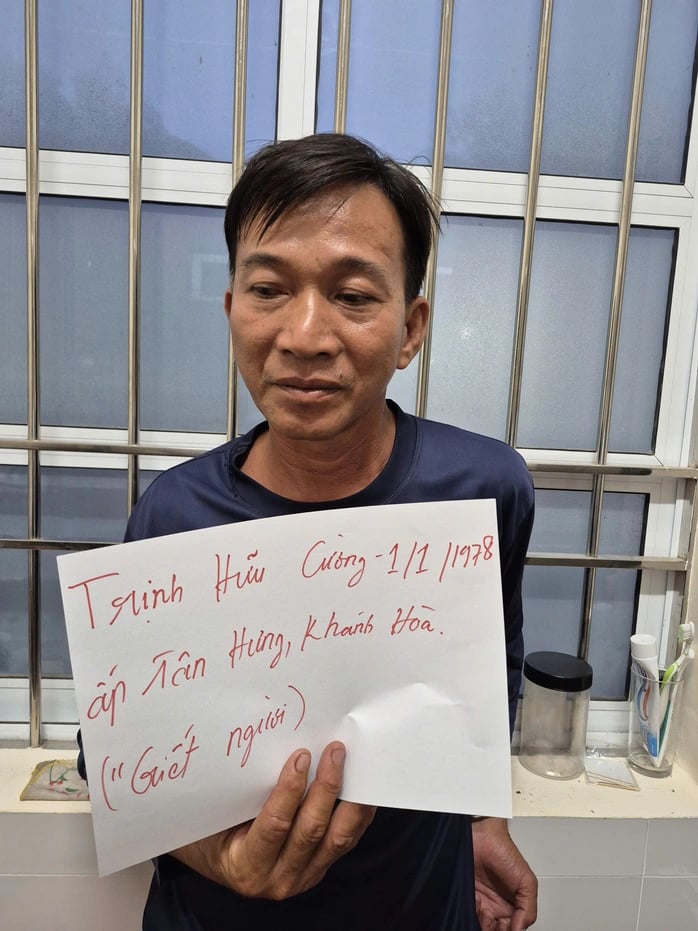 Trịnh Hữu Cường - 1/1/1978
ấp Tân Hưng, Khánh Hòa.
("Giết người)